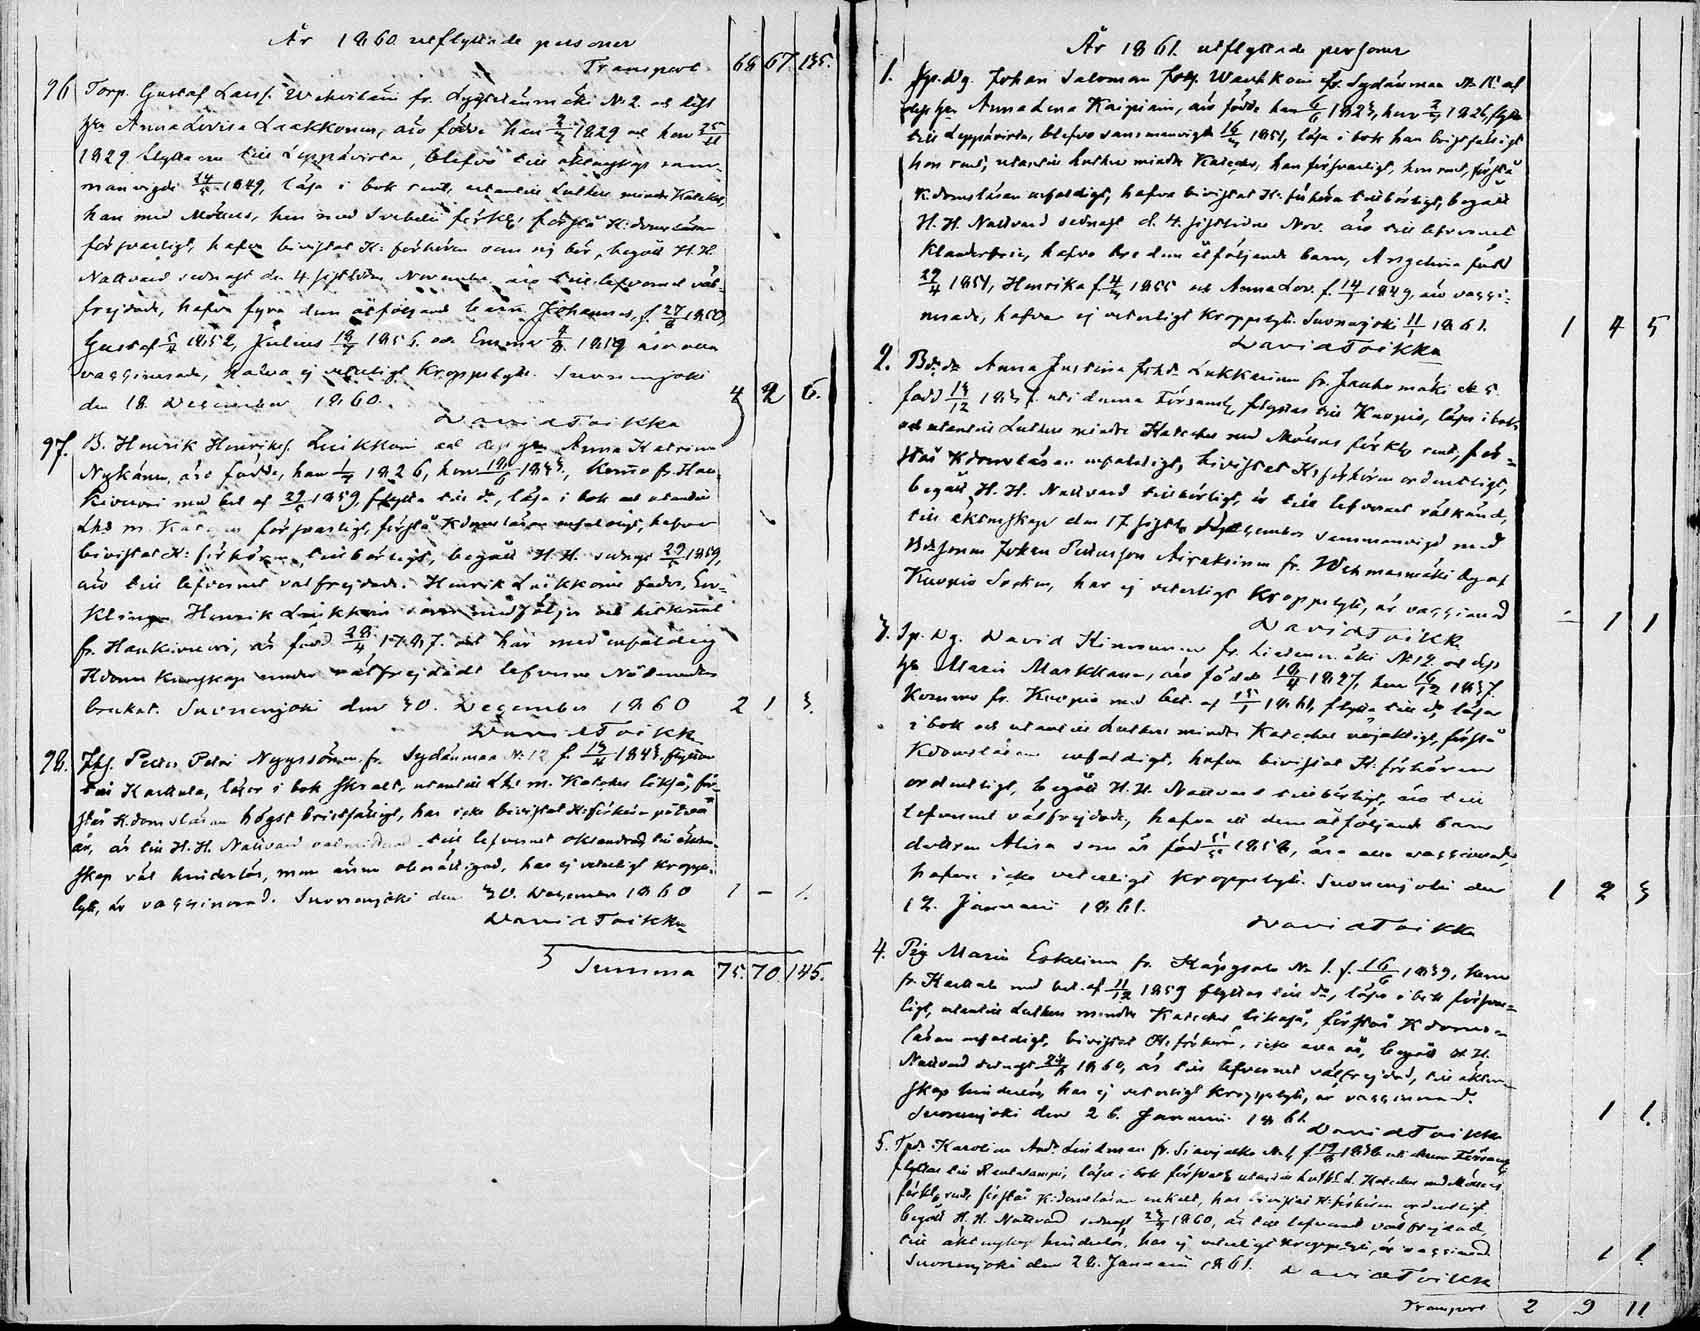 År 1860 utflyttade personer
Transport. 68 67. 135.
96 Torp. Gustaf Larss. Wihviläin fr. N:o 2. och dess
h:u Anna Lovisa Laakkonen, äro födde han 1829 och hon 25/11
1829 flytta nu till Leppävirta, blefvo till äktenskap sam-
manvigde 24/ 1849, läsa i bok rent, utantill Lutheri mindre Kateches,
han med Möllers, hon med Svebelii förkl. förstå K:domsläran
försvarligt, hafva bivistat K: förhören som sig bör, begått H. H.
Nattvard sednast d. 4. sistliden November, äro till lefvernet väl-
frejdade, hafva fyra dem åtföljande barn Johannes, f. 27/8 1850,
Gustaf 1852, Julius 1856. och Emma 1859 äro alla
vaccinerade, hafva ej veterligt kroppslyte. Suonenjoki
den 18. December 1860. 4 2 6.
David Toikka
97. B. Henrik Henriks. Luikkoin och dess h:u Anna Katrina
Nykänen, äro födde, han 1826, hon 1833, komo fr. Hau-
kivuori med bet. af 29/ 1859, flytta till d:o, läsa i bok och utantill
Luth. m. Katches försvarligt, förstå K:domsläran enfaldigt, hafva
bivistat K: förhören tillbörligt, begått H. H. sednast 29/ 1859,
äro till lefvernet välfrejdade. Henrik Luikkoins fader, En-
klingen Henrik Luikkoin som medföljer och hitkommit
fr. Haukivuori, är född 28/4 1787. och har med enfaldig
K:doms kunskap under välfrejdadt lefverne Nådemedlen
brukat. Suonenjoki den 30. December 1860 2 1 3.
David Toikka
98. Petter Petri Nyyssönen fr. Sydänmaa N:o 12 f. 1843, flyttar
till Karttula, läser i bok svalt, utantill Luth. m. Kateches likså, för-
står K:domsläran högst bristfälligt, har icke bivistat K:förhören på två
år, är till H. H. Nattvard till lefvernet oklandrad till äkten-
skap väl hinderlös, men ännu obemäktigad, har ej veterligt kropps-
lyte, är vaccinerad. Suonenjoki den 30. December 1860 1 – 1.
David Toikka
Summa 75. 70. 145.
År 1861. utflyttade personer
1. Sp. Dg. Johan Saloman Johs. Wauhkoin fr. Sydänmaa och
dess h:u Anna Lena Kaipiain, äro födde han 6/6 1823, hon 1826, flytta
till Leppävirta, blefvo sammanvigde 16/ 1851, läsa i bok han bristfälligt
hon rent, utantill Lutheri mindre Kateches, han försvarligt, hon rent, förstå
K:domsläran enfaldigt, hafva bivistat K: förhören tillbörligt, begått
H. H. Nattvard sednast d. 4. sistliden Nov. äro till lefvernet
klanderfrie, hafva tre dem åtföljande barn, Angelina född
29/4 1851, Henrika f. 1855 och Anna Lov. f. 14/ 1849, äro vacci-
nerade, hafva ej veterligt kroppslyte. Suonenjoki 11/1 1861. 1 4 5
David Toikka
2. Bd:dr Anna Justina Johd:r Lukkarinen fr. Jauhomäki N:o 5
född 13/12 183. uti denna Församl. flyttas till Kuopio, läser i bok
och utantill Lutheri mindre Kateches med Möllers förkl. rent, för-
står K:domsläran enfaldigt, bivistat K:förhören ordentligt,
begått H. H. Nattvard tillbörligt, är till lefvernet välkänd,
till äktenskap den 17. sistl. December sammanvigd med
Bd:sonen Johan Petersson Airaksinen fr. Wehmasmäki by af
Kuopio Socken, har ej veterligt kroppslyte, är vaccinerad – 1 1
David Toikka
3. Sp. Dg. David Hinnunen fr. Liedenmäki N:o 12. och dess
h:u Maria Markkanen, äro födde 18/4 1827, hon 16/12 1837.
komna fr. Kuopio med bet. af 15/1 186, flytta till d:o, läsa
i bok och utantill Lutheri mindre Kateches nöjaktigt, förstå
K:domsläran enfaldigt, hafva bivistat K: förhören
ordentligt, begått H. H. Nattvard tillbörligt, äro till
lefvernet välfrejdade, hafva ett dem åtföljande barn
dottren Alisa som är född 1858, äro alla vaccinerade,
hafva icke veterligt kroppslyte. Suonenjoki den
12. Januari 1861. 1 2 3
David Toikka
4. Pig. Maria Eskelinen fr. Käpysalo N:o 1. f. 16/6 1839, kom
fr. Karttula med bet. af 11/12 1859 flyttas till d:o, läser i bok försvar-
ligt, utantill Lutheri mindre Kateches likaså, förstår K:doms-
läran enfaldigt, bivistat K: förhören icke alla år, begått H. H.
Nattvard sednast 24/ 1860, är till lefvernet välfrejdad, till äkten-
skap hinderlös, har ej veterligt kroppslyte, är vaccinerad.
Suonenjoki den 26. Januari 1861. 1 1.
David Toikka
5. Karolina And. Lindman fr. f. 19/ 1838 uti denna Församl.
flyttar till Rautalampi, läser i bok försvarl. utantill Luth. L. Kateches med Möllers
förkl. rent, förstår K:domsläran enkelt, har bivistat K:förhören ordentligt,
begått H. H. Nattvard sednast 1860, är till lefvernet välfrejdad,
till äktenskap hinderlös, har ej veterligt kroppslyte, är vaccinerad 1 1.
Suonenjoki den 28. Januari 1861. David Toikka
Transport 2 9 11